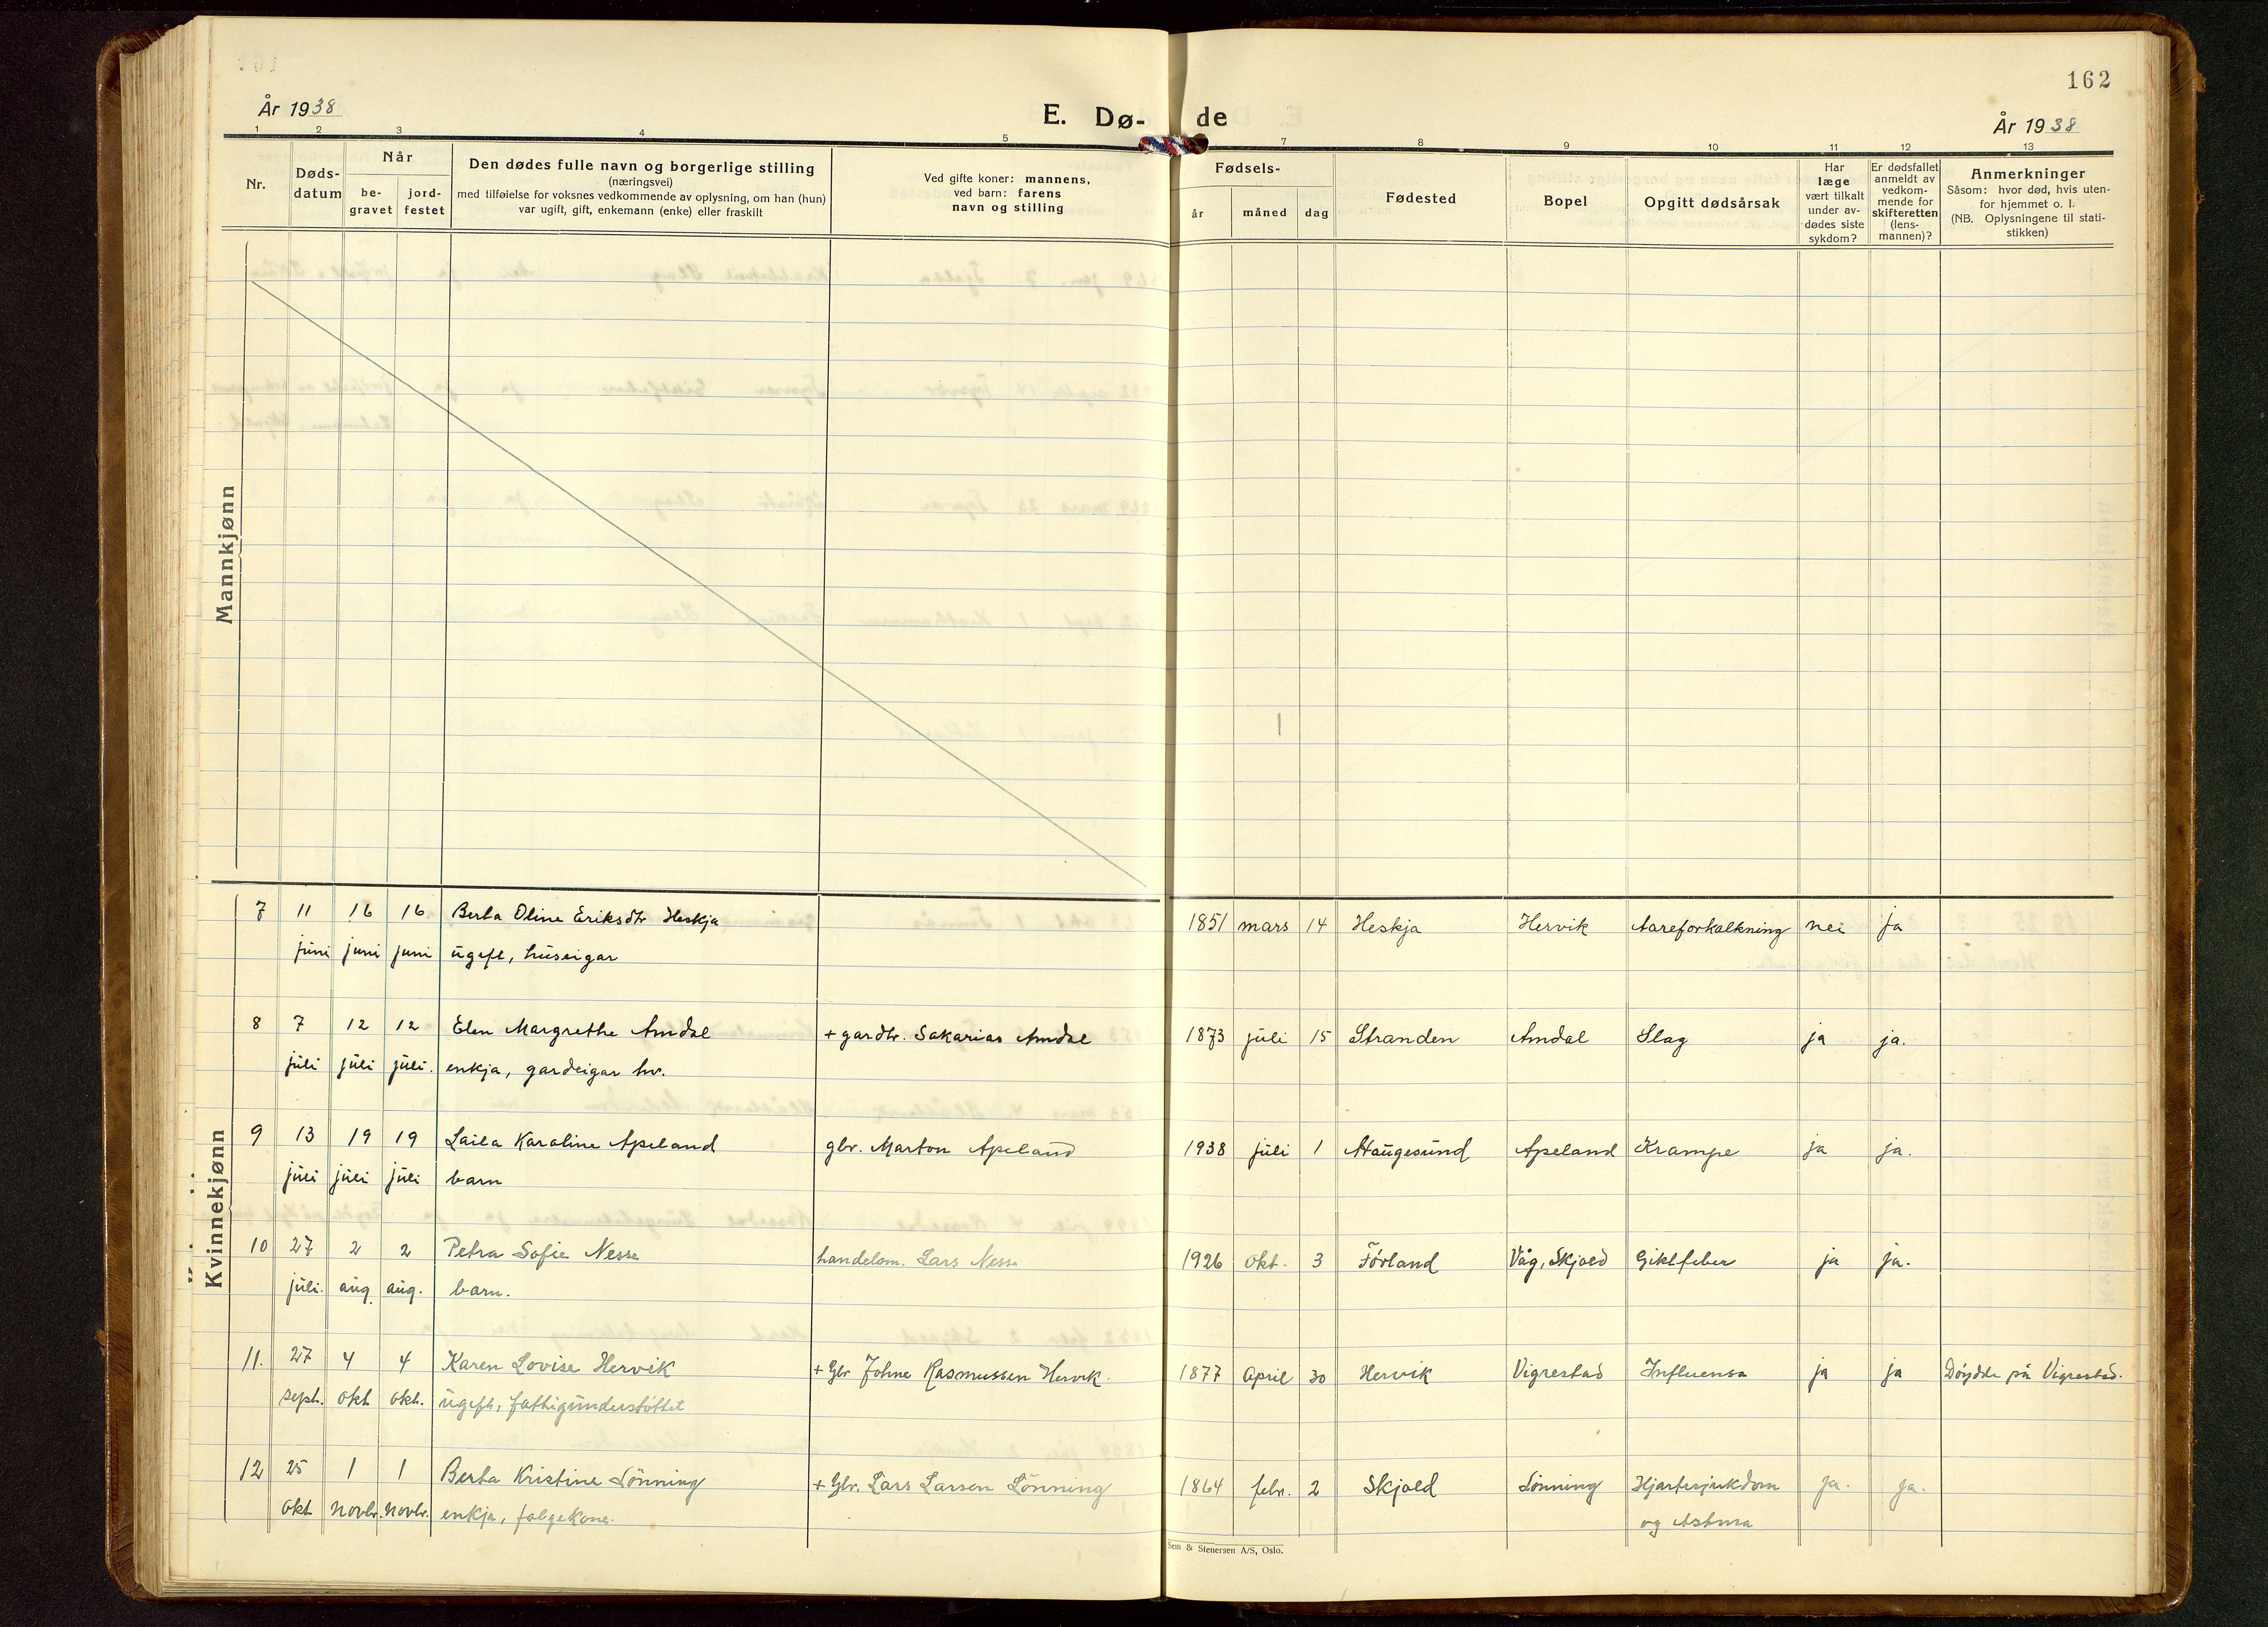 162
År 1938
E. Dø-
de
År 1938
1 2 3 4 5 7 8 9 10 11 12 13
Nr.
Døds-
datum
Når
be-
gravet
jord-
festet
Den dødes fulle navn og borgerlige stilling
(næringsvei)
med tilføielse for voksnes vedkommende av oplysning, om han (hun)
var ugift, gift, enkemann (enke) eller fraskilt
Ved gifte koner: mannens,
ved barn: farens
navn og stilling
Fødsels-
år
måned
dag
Fødested
Bopel
Opgitt dødsårsak
Har
læge
vært tilkalt
under av-
dødes siste
sykdom?
Er dødsfallet
anmeldt av
vedkom-
mende for
skifteretten
(lens-
mannen)?
Anmerkninger
Såsom: hvor død, hvis uten-
for hjemmet o. l.
(NB. Oplysningene til stati-
stikken)
Mannkjønn
Kvinnekjønn
7 11 16 16 Berta Oline Eriksdtr Heskja 1851 mars 14 Heskja Hervik Aareforkalkning nei ja
juni juni juni ugift, huseigar
8 7 12 12 Elen Margrethe Amdal + gardbr. Sakarias Amdal 1873 juli 15 Stranden Amdal Slag ja ja.
juli juli juli. enkja, gardeigar hv.
9 13 19 19 Laila Karoline Apeland gbr. Marton Apeland 1938 juli 1 Haugesund Apeland Krampe ja ja.
juli juli juli barn
10 27 2 2 Petra Sofie Nesse handelsm. Lars Nesse 1926 okt. 3 Førland Våg, Skjold Giktfeber ja ja.
juli. aug. aug. barn.
11. 27 4 4 Karen Lovise Hervik + Gbr Johne Rasmussen Hervik. 1877 April 30 Hervik Vigrestad Influensa ja ja Døydde på Vigrestad.
sept. okt okt. ugift, fattigunderstøttet
12 25 1 1 Berta Kristine Lønning + Gbr. Lars Larsen Lønning 1864 febr. 2 Skjold Lønning Hjartesjukdom ja. ja.
okt novbr. novbr. enkja, følgekone. og Astma
Sem & Stenersen A/S, Oslo.